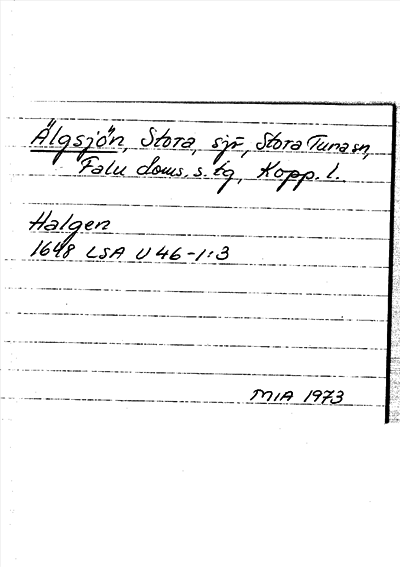 Älgsjön, Stora, sjö, Stora Tuna sn,
Falu doms. s. tg, Kopp. l.
Halgen
1648 LSA U 46-1:3
MIA 1973